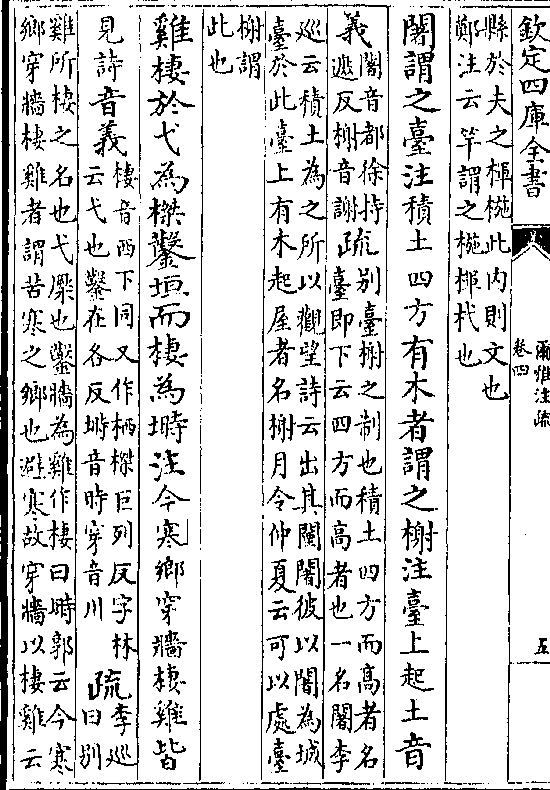 欽定四庫全書
爾雅注疏
卷四
五
縣於夫之楎椸此內則文也
鄭注云竿謂之椸楎杙也
闍謂之臺注積土四方有木者謂之榭注臺上起土音
義闍音都徐持
遮反榭音謝
疏别臺榭之制也積土四方而髙者名
臺即下云四方而高者也一名闍李
巡云積土為之所以觀望詩云出其闉闍彼以闍為城
臺於此臺上有木起屋者名榭月令仲夏云可以處臺
榭謂
此也
雞棲於弋為榤鑿垣而棲為塒注今寒鄉穿牆棲雞皆
見詩音義棲音西下同又作栖榤巨列反字林
云弋也鑿在各反塒音時穿音川
疏李巡
曰别
雞所棲之名也弋橜也鑿牆為雞作棲曰塒郭云今寒
鄉穿牆棲雞者謂苦寒之鄉也避寒故穿牆以棲雞云